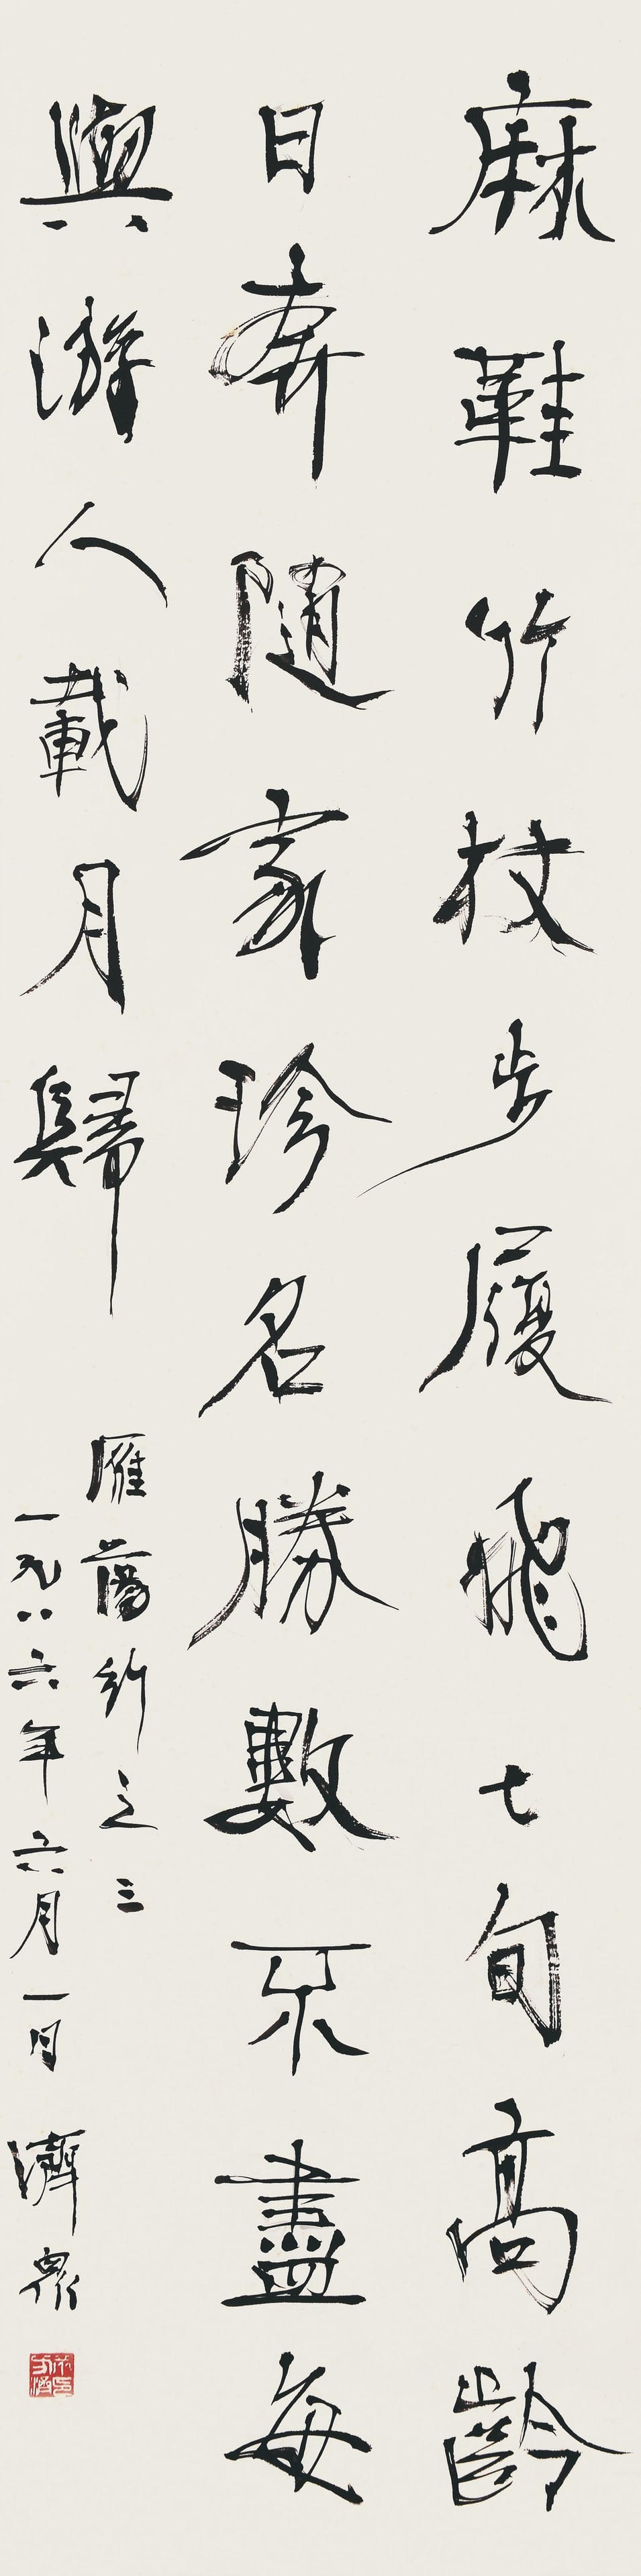 麻鞋竹杖步履飛七旬高齡
日奔隨家珍名勝數不盡每
與游人載月歸
雁蕩行之三
一九八六年六月一日濟眾